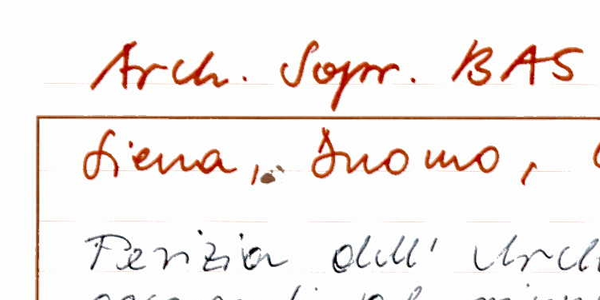 Arch. Sopr. BAS
Siena, Duomo,
Perizia dell' Arch